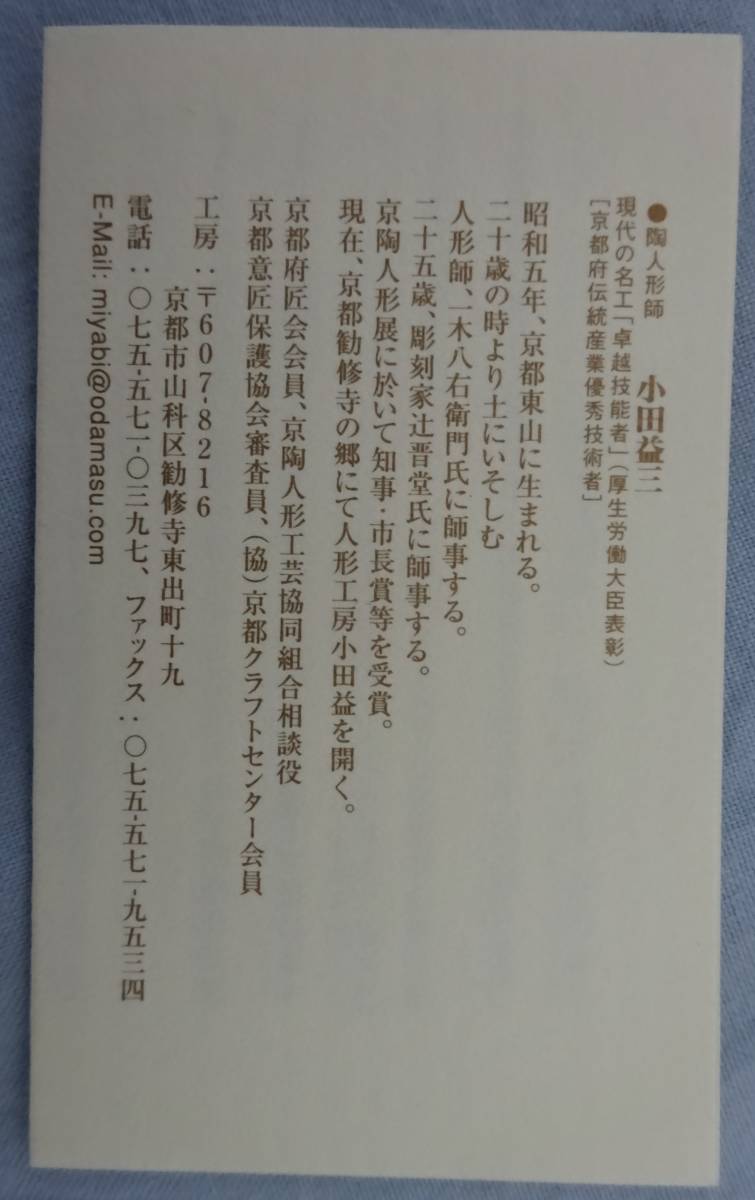 ●陶人形師　小田益三
現代の名工「卓越技能者」(厚生労働大臣表彰)
[京都府伝統産業優秀技術者]
昭和五年、京都東山に生まれる。
二十歳の時より土にいそしむ
人形師、一木八右衛門氏に師事する。
二十五歳、彫刻家辻晋堂氏に師事する。
京陶人形展に於いて知事・市長賞等を受賞。
現在、京都勧修寺の郷にて人形工房小田益を開く。
京都府匠会会員、京陶人形工芸協同組合相談役
京都意匠保護協会審査員、(協)京都クラフトセンター会員
工房：〒607-8216
京都市山科区勧修寺東出町十九
電話：〇七五-五七一-〇三九七、ファックス：〇七五-五七一-九五三四
E-Mail: miyabi@odamasu.com